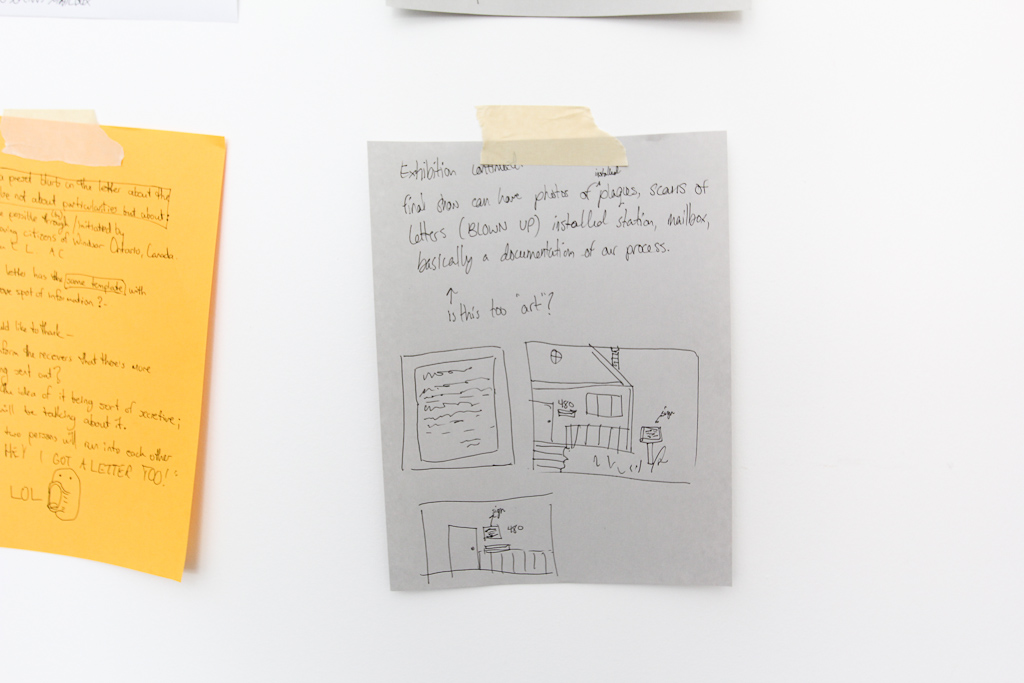 a preset blurb in the letter about the
not about particularities but about:
possible through / initiated by
citizens of Windsor Ontario, Canada
letter has the same template with
spot of information?
like to thank -
the receivers that there's more
sent out?
the idea of it being sort of secretive;
will be talking about it.
two persons will run into each other
HEY I GOT A LETTER TOO!
LOL
Exhibition continued.
installed
final show can have photos of plaques, scans of
letters (BLOWN UP) installed station, mailbox,
basically a documentation of our process.
is this too "art"?
480
sign
sign
480